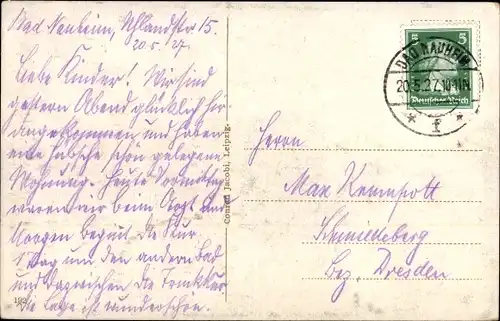 Bad Nauheim, Uhlandstr 15.
20.5.27.
Liebe Kinder! Wir sind
gestern Abend glücklich hier
angekommen und haben
eine hübsche schön gelegene
Wohnung. Heute Vormittag
waren wir beim Arzt und
Morgen beginnt die Kur
1 Tag um den andern Bad
und dazwischen die Trinkkur
Die Lage ist wunderschön.
193
Conrad Jacobi, Leipzig.
5
5
Deutsches Reich
BAD NAUHEIM
20.5.27.10-11N.
* f *
Herrn
Max Kempott
Schmiedeberg
Bez. Dresden